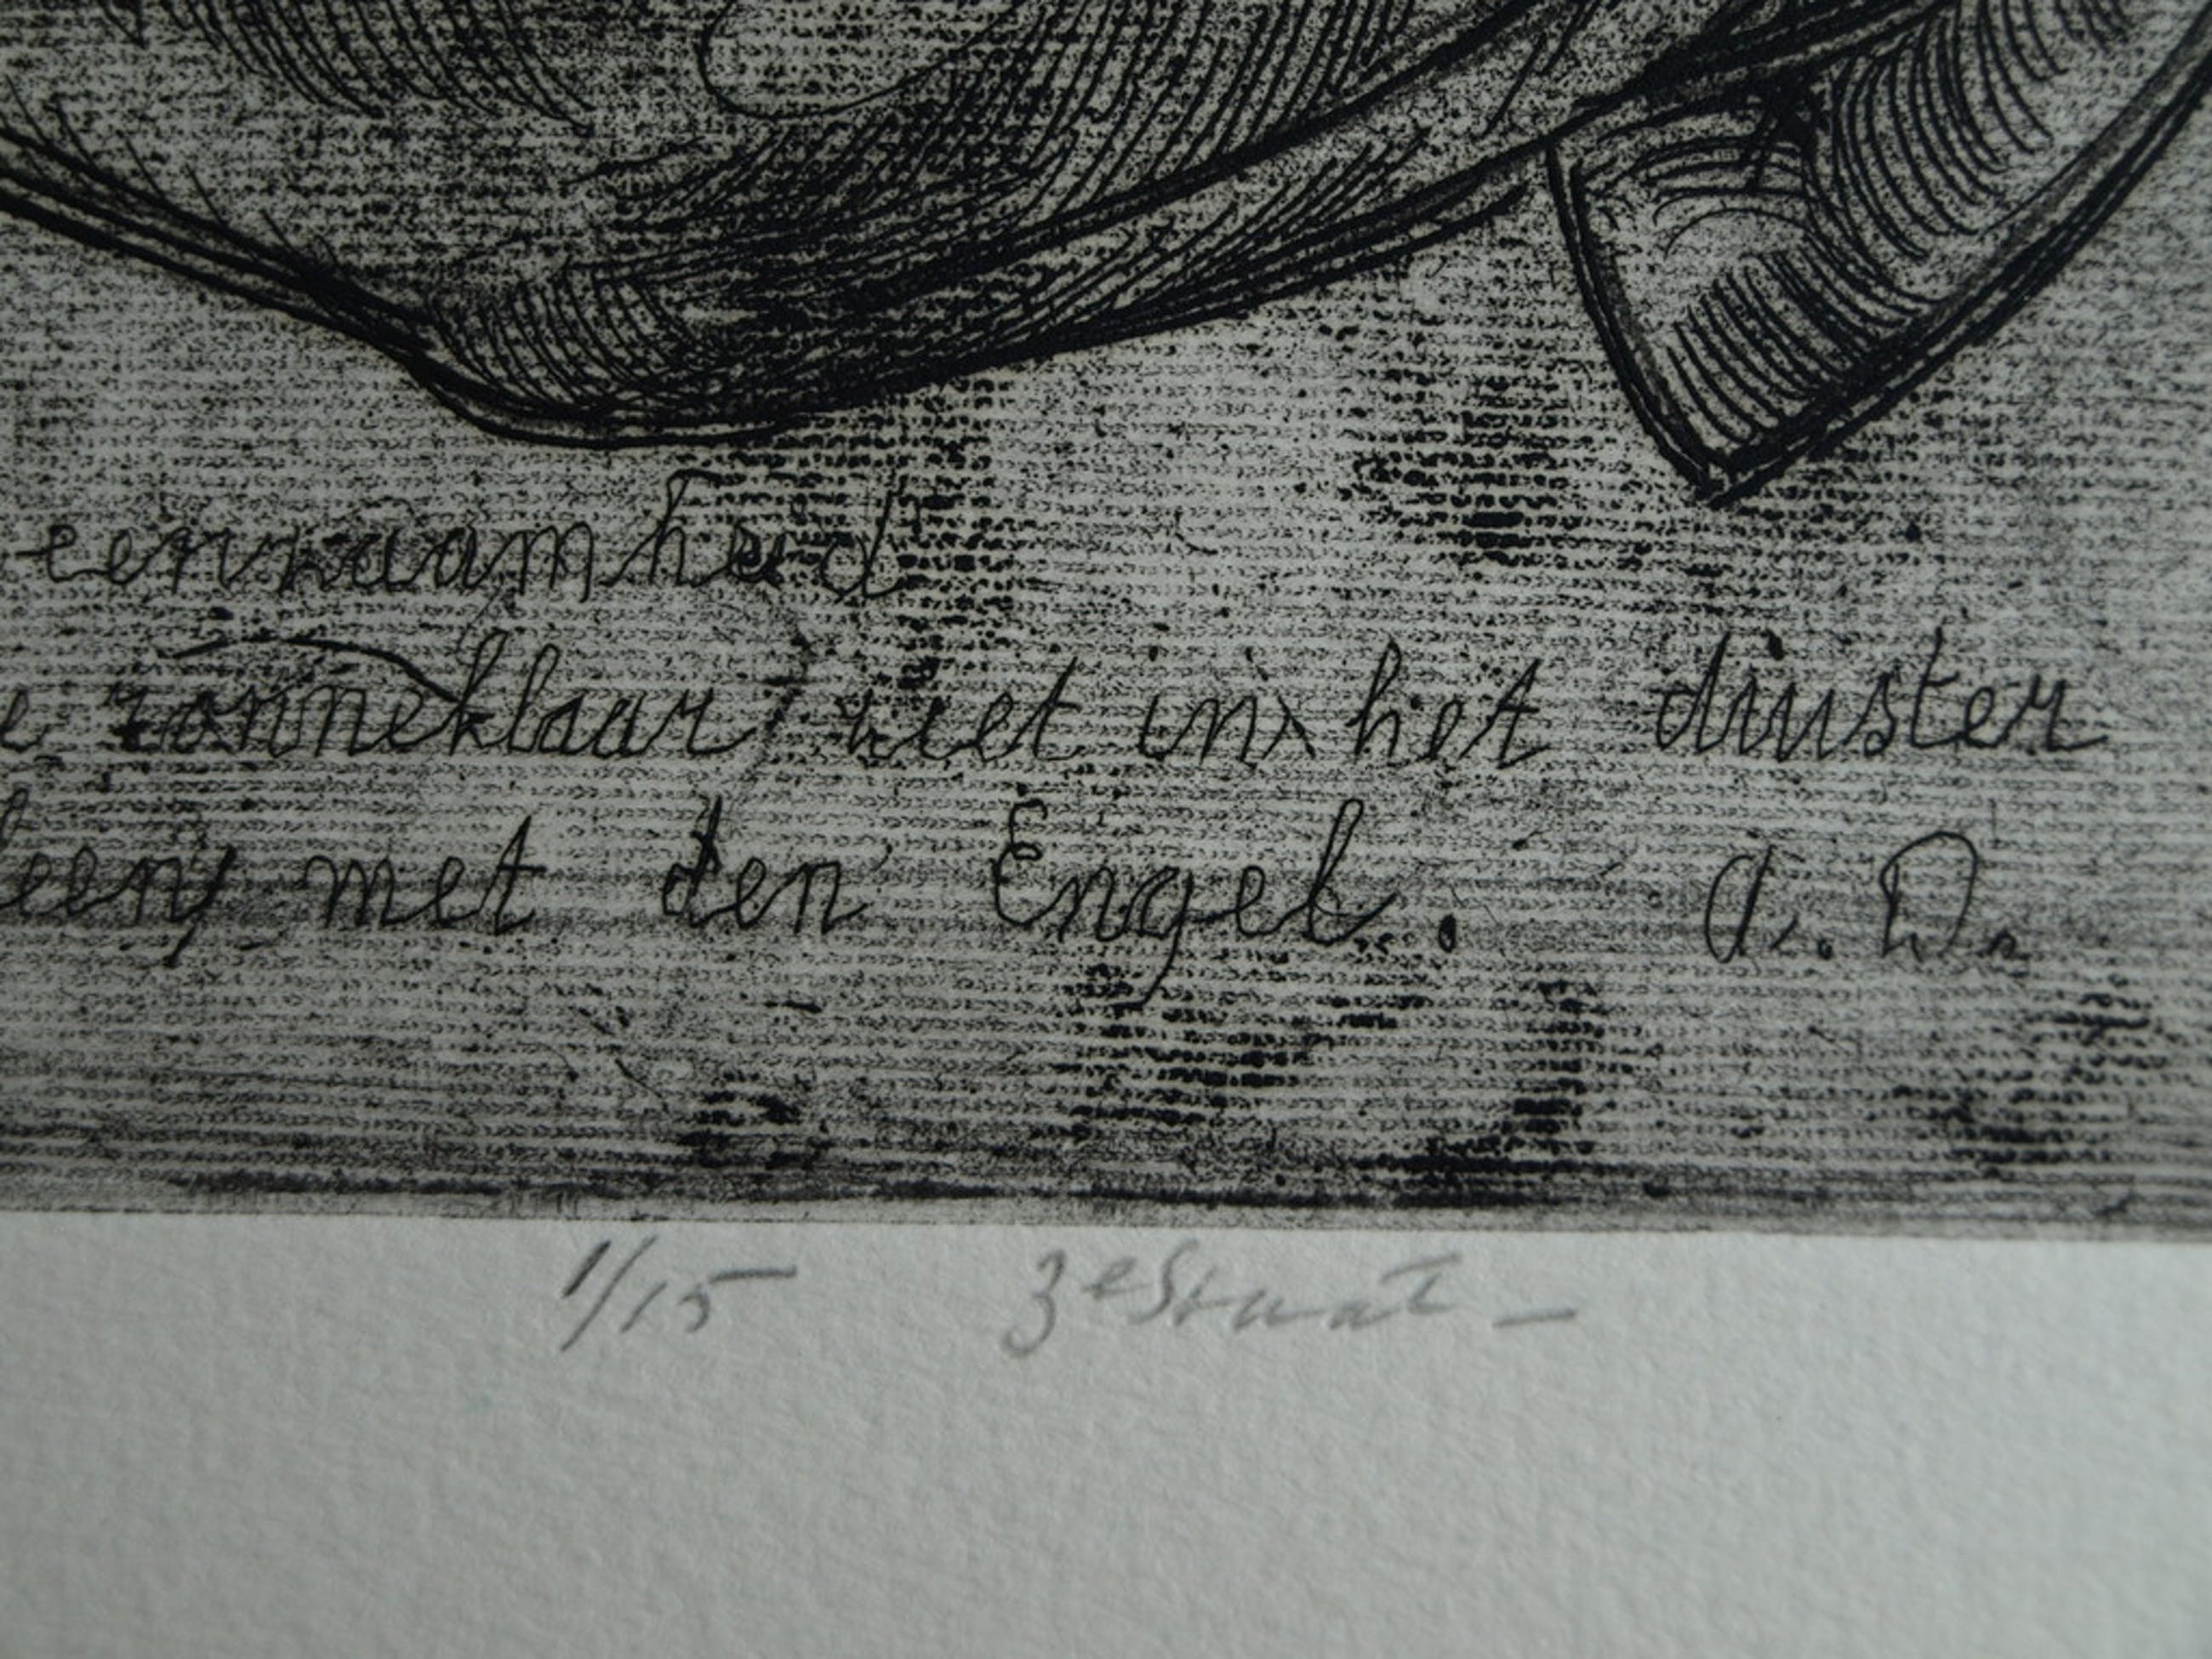 eenzaamheid
e zonneklaar, niet in het duister
leen, met den Engel. A. D.
1/15 3e Staat -